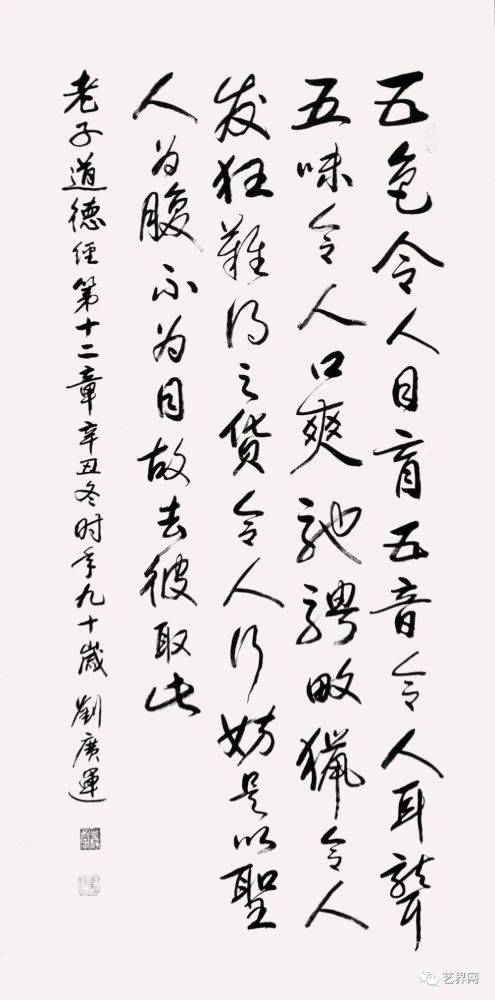 五色令人目盲五音令人耳聾
五味令人口爽馳騁畋獵令人
发狂難得之货令人行妨是以聖
人为腹不为目故去彼取此
老子道德經第十二章辛丑冬时年九十歲 劉廣運
艺界网